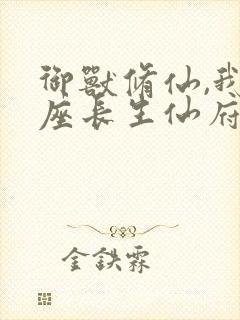 御獸脩仙,我
座長生仙府
金鉄霖